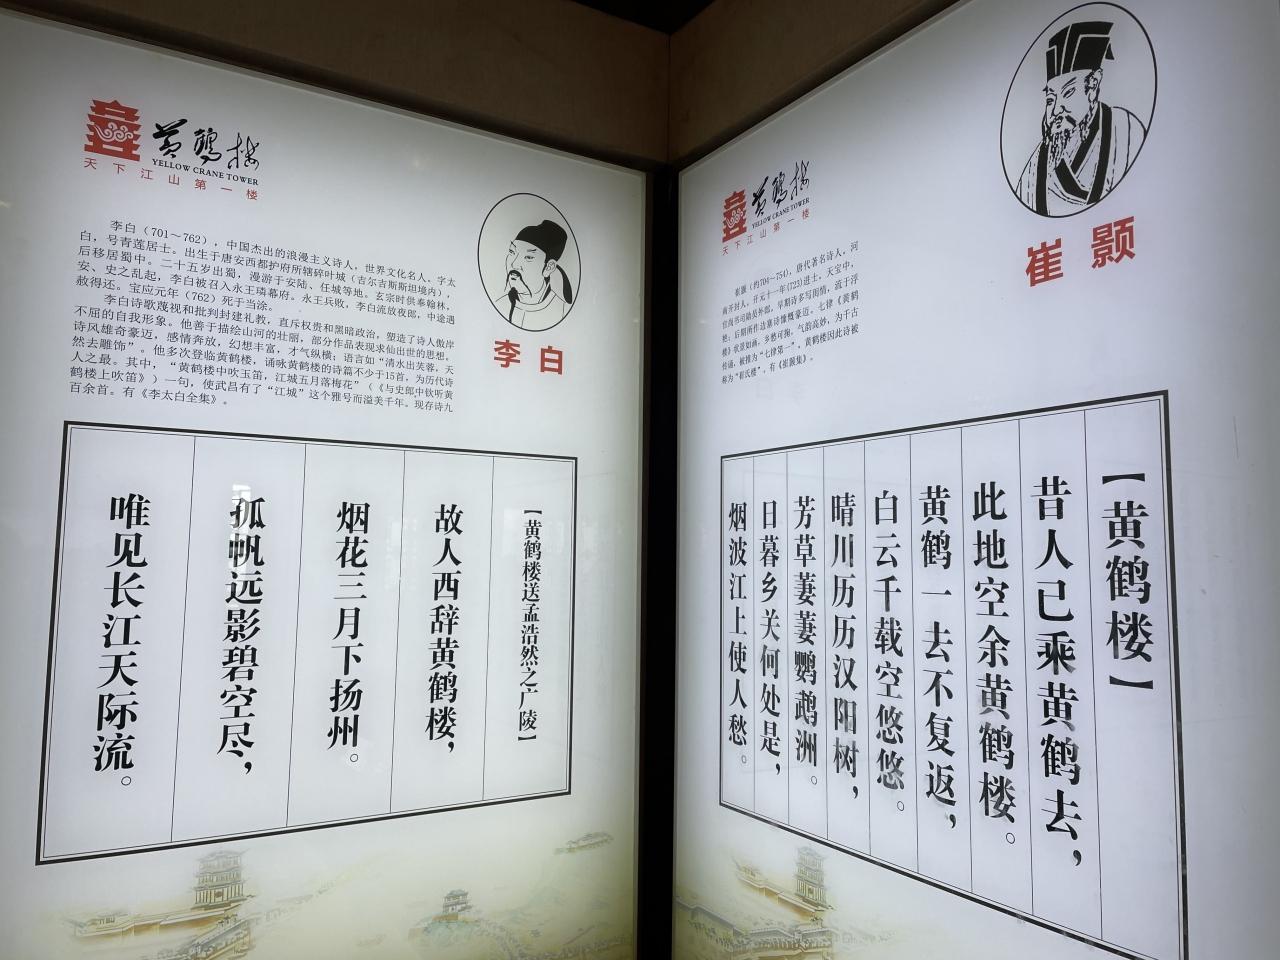 黄鹤楼
YELLOW CRANE TOWER
天下江山第一楼
李白（701～762），中国杰出的浪漫主义诗人，世界文化名人，字太
白，号青莲居士。出生于唐安西都护府所辖碎叶城（吉尔吉斯斯坦境内），
后移居蜀中。二十五岁出蜀，漫游于安陆、任城等地。玄宗时供奉翰林，
安、史之乱起，李白被召入永王璘幕府。永王兵败，李白流放夜郎，中途遇
赦得还。宝应元年（762）死于当涂。
李白诗歌蔑视和批判封建礼教，直斥权贵和黑暗政治，塑造了诗人傲岸
不屈的自我形象。他善于描绘山河的壮丽，部分作品表现求仙出世的思想，
诗风雄奇豪迈，感情奔放，幻想丰富，才气纵横；语言如“清水出芙蓉，天
然去雕饰”。他多次登临黄鹤楼，诵咏黄鹤楼的诗篇不少于15首，为历代诗
人之最。其中，“黄鹤楼中吹玉笛，江城五月落梅花”（《与史郎中钦听黄
鹤楼上吹笛》）一句，使武昌有了“江城”这个雅号而溢美千年。现存诗九
百余首。有《李太白全集》。
李白
【黄鹤楼送孟浩然之广陵】
故人西辞黄鹤楼，
烟花三月下扬州。
孤帆远影碧空尽，
唯见长江天际流。
黄鹤楼
YELLOW CRANE TOWER
天下江山第一楼
崔颢（约704～754），唐代著名诗人，河
南开封人。开元十一年(723)进士，天宝中，
官尚书司勋员外郎。早期诗多写闺情，流于浮
艳；后期所作边塞诗慷慨豪迈。七律《黄鹤
楼》状景如画，乡愁可掬，气韵高妙，为千古
传诵，被推为“七律第一”，黄鹤楼因此诗被
称为“崔氏楼”。有《崔颢集》。
崔颢
【黄鹤楼】
昔人已乘黄鹤去，
此地空余黄鹤楼。
黄鹤一去不复返，
白云千载空悠悠。
晴川历历汉阳树，
芳草萋萋鹦鹉洲。
日暮乡关何处是，
烟波江上使人愁。